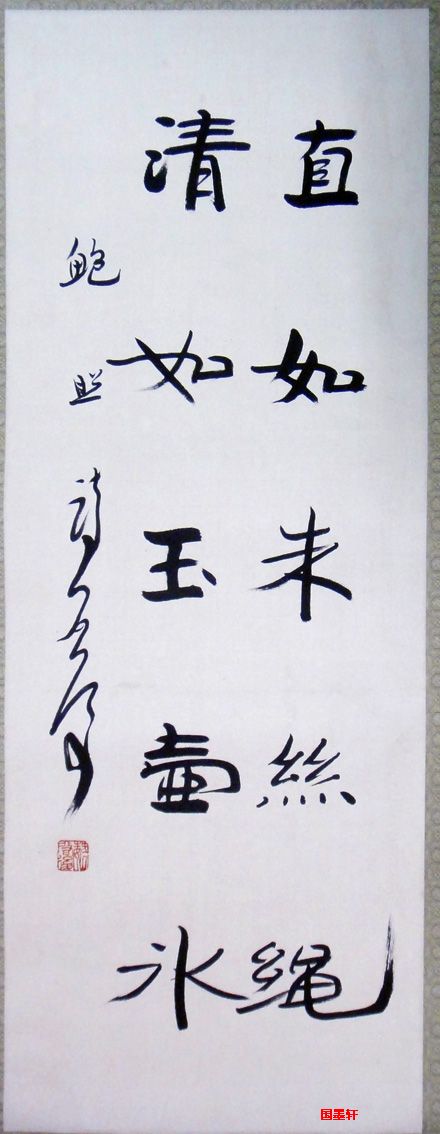 直如朱絲绳
清如玉壺冰
鮑照詩
国墨轩